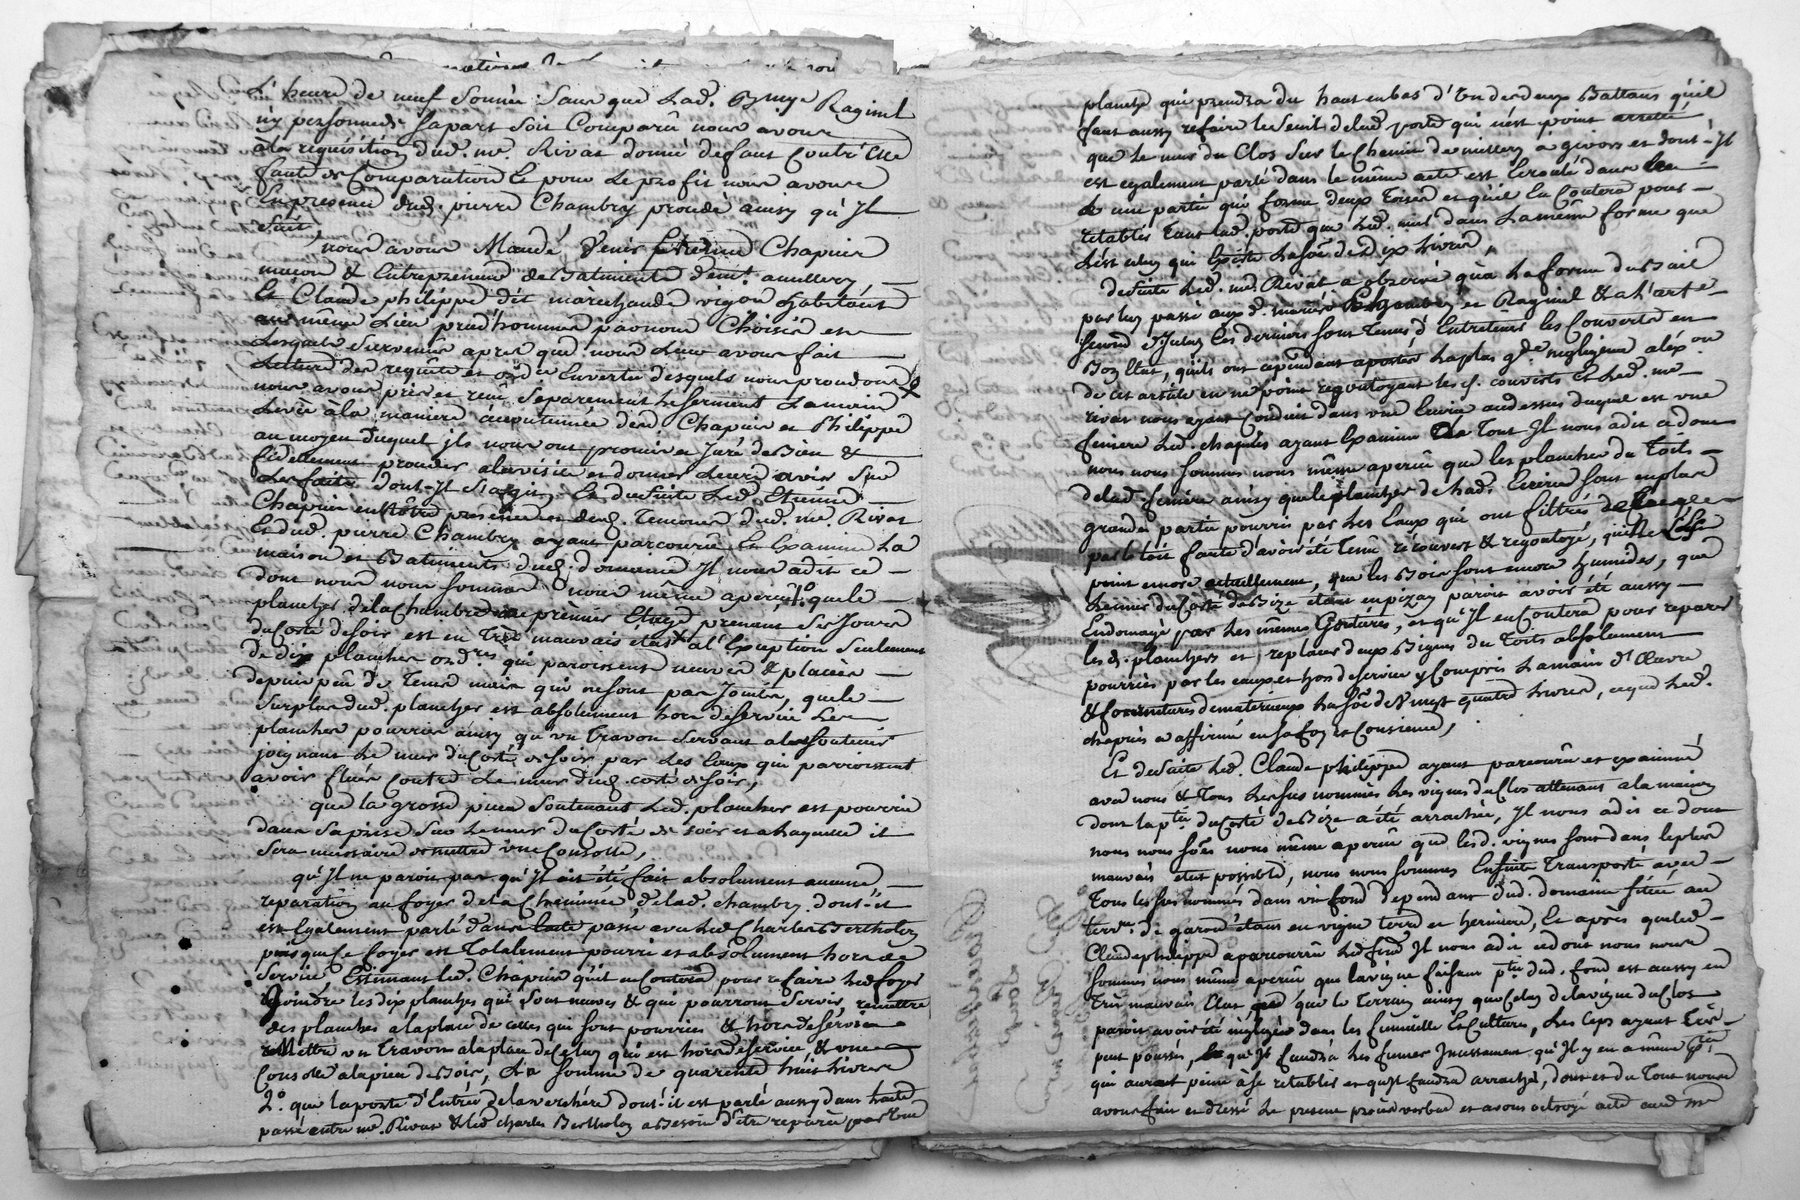 L'heure de neuf sonnée sans que lad. Raginel
n'y personne de sa part soit Comparû nous avons
a la requisition dud. me. Rivat donné defaut Contr'elle
faute de Comparution & pour le profit nous avons
En presence dud. pierre Chambry procedé ainsy qu'Jl
suit
nous avons Mandé venir Etienne Chapuis
maçon & Entrepreneur de Batiments demt. a millery
Et Claude philippe dit vigneron habitant
au même Lieu prud'hommes par nous Choisis
Lesquels survenus apres que nous Leur avons fait
Lecture des requête et ordce En vertu desquels nous procedons
nous avons pris et reçû separement le serment La main
Levée à la maniere accoutumée desd. Chapuis et Philippe
au moyen duquel jls nous ont promis et Juré de Bien &
fidellement proceder a la visite et donner Leurs avis sur
Les faits dont Jl s'agit, Et de suite Led. Etienne
Chapuis en Nôtre presence et desd. Temoins dud. me. Rivat
Et dud. pierre Chambry ayant parcouru Et Examiné La
maison et Batiments dud. domaine Jl nous a dit ce
dont nous nous sommes nous même aperçu 1o. que le
plancher de la Chambre au premier Etage prenant ses Jours
du Corté de soir est en Très mauvais état a l'Exception seulement
de dix planches ordres qui paroissent neuves & placées
depuis peu de Tems mais qui ne sont pas Jointes, que le
surplus dud. plancher est absolument hors de service Les
planches pourries ainsy qu'un travon servant a les soutenir
joignant Le mur du Corté de soir par les Eaux qui parroissent
avoir fluées contre Le mur dud. corté de soir,
que la grosse piece soutenant Led. plancher est pourrie
dans sa prise sur Le mur du Corté de soir et a laquelle il
sera necessaire de mettre une Console,
qu'Jl ne paroit pas qu'Jl ait été fait absolument aucune
reparation au foyer de la Cheminée de lad. chambre dont il
est Egalement parlé dans passé avec Led. Charles Bertholey
puisque Ce foyer est Totalement pourri et absolument hors de
service, Estimant led. Chapuis qu'il en Coutera pour refaire Led. foyer
Joindre les dix planches qui sont neuves & qui pourront servir, remettre
des planches a la place de celles qui sont pourries & hors de service
remettre un travon a la place de Celuy qui est hors de service & une
Console a la piece de Bois, La somme de quarente huit Livres
2o. que la porte d'Entrée de la verchère dont il est parlé aussy dans
passé entre me. Rivat & led. charles Bertholey a Besoin d'être reparée par une
planche qui prendra du haut en bas d'un des deux Battans qu'il
faut aussy refaire le seuil de lad. porte qui n'est point arreté
que le mur du Clos sur le Chemin de millery à givors et dont Jl
est egalement parlé dans le même acte est Ecroulé dans
une partie qui forme deux Toises et qu'il En Coutera pour
retablir tant lad. porte que led. mur dans La même forme que
Celuy qui Existe La soe. de dix Livres,
de suite Led. me. Rivat a observé qu'a La forme du Bail
par luy passé aux d. mariés Chambry et Raginel
Ces derniers sont Tenus d'Entretenir les Couverts en
Bon Etat, qu'ils ont cependant aporté La plus gde. negligence a l'éxon
de cet article en ne point regoutoyant les d. couverts Et Led. me.
rivat nous ayant Conduit dans une Ecurie au dessus duquel est une
feniere Led. chapuis ayant Examiné Le Tout Jl nous a dit ce dont
nous nous sommes nous même aperçu que les planches du Toits
de lad. feniere ainsy que le plancher de lad. Ecurie sont en plus
grande partie pourris par Les Eaux qui ont filtrés
par le toit faute d'avoir été Tenû recouvert & regoutoyé,
point encore actuellement, que les Bois sont encore humides, que
Le mur du Corté de Bize étant en pizay paroit avoir été aussy
Endomagé par Les mêmes Goutieres, et qu'Jl en Coutera pour reparer
les d. planchers et replacer deux du Toits absolument
pourries par les eaux et hors de service y Compris La main d'Œuvre
& fournitures de materieaux La soe. de vingt quatre Livres, ce que Led.
chapuis a affirmé en sa foy et Conscience,
Et de suite Led. Claude philippe ayant parcouru et examiné
avec nous & Tous Les sus nommés Les vignes du Clos attenant a la maison
dont la ptie. du Corté de Bize a été arrachée, Jl nous a dit ce dont
nous nous soes. nous même aperçu que les d. vignes sont dans le plus
mauvais état possible, nous nous sommes Ensuite Transporté avec
Tous les sus nommés dans un fond dependant dud. domaine situé au
terrre. de garod étant en vigne terre et hermiere, Et après que led.
Claude philippe a parcouru Led. fond Jl nous a dit ce dont nous nous
sommes nous même aperçu que la vigne faisant ptie. dud. fond est aussy en
Très mauvais Etat, que le terrain ainsy que Celuy de la vigne du Clos
paroit avoir été negligé dans les fumures Et Cultures, Les Ceps ayant Très
peu poussés, qu'Jl faudra Les fumer Jncessamment qu'Jl y en a même ptie.
qui auront peine à se retablir et qu'Jl faudra arracher, dont et du Tout nous
avons fait et dressé Le present procès verbal et avons octroyé acte aud. me